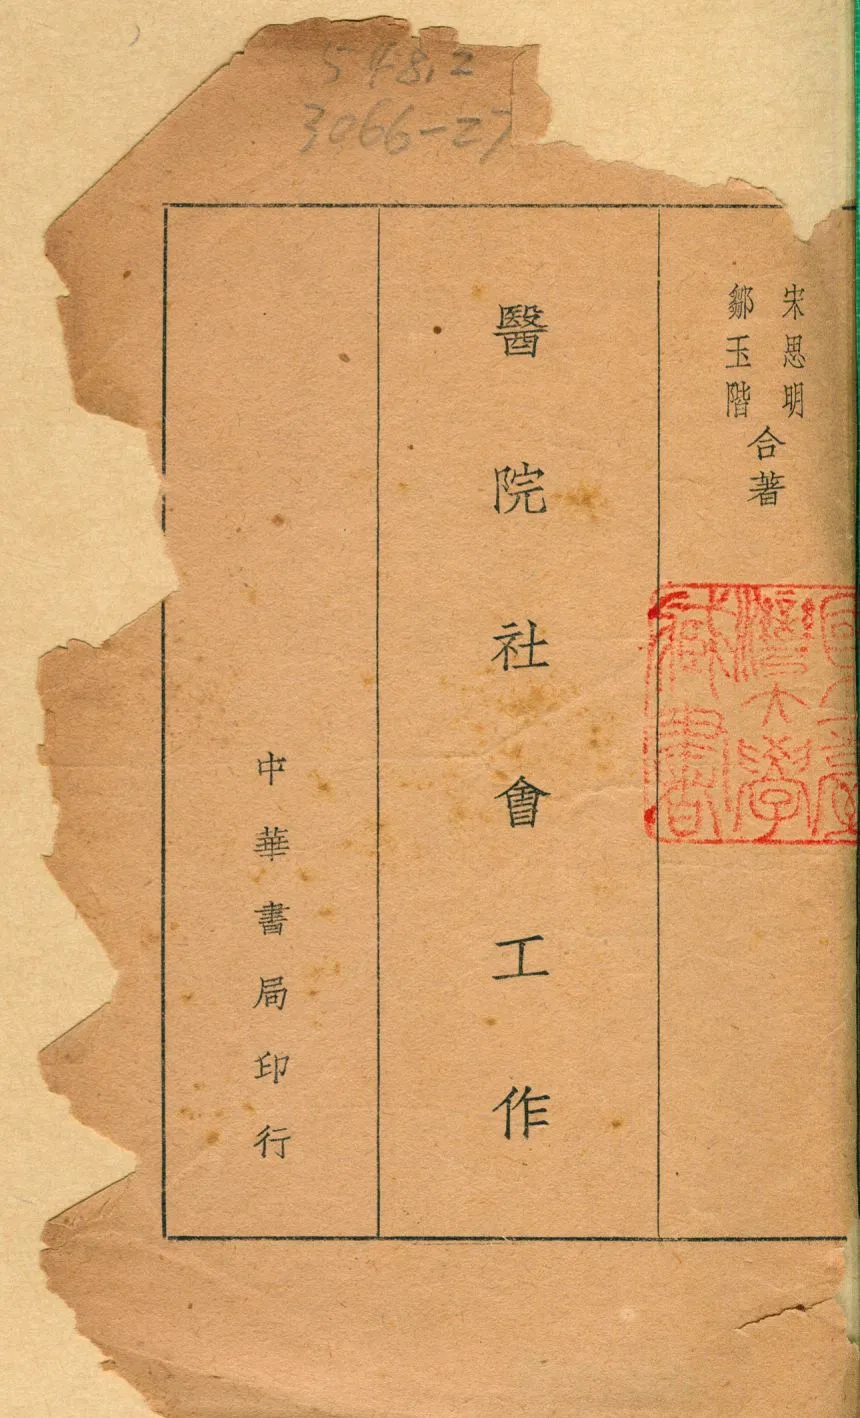 548.2
3066-27
宋思明
鄒玉階
合著
醫院社會工作
中華書局印行
國立臺
灣大學
藏書